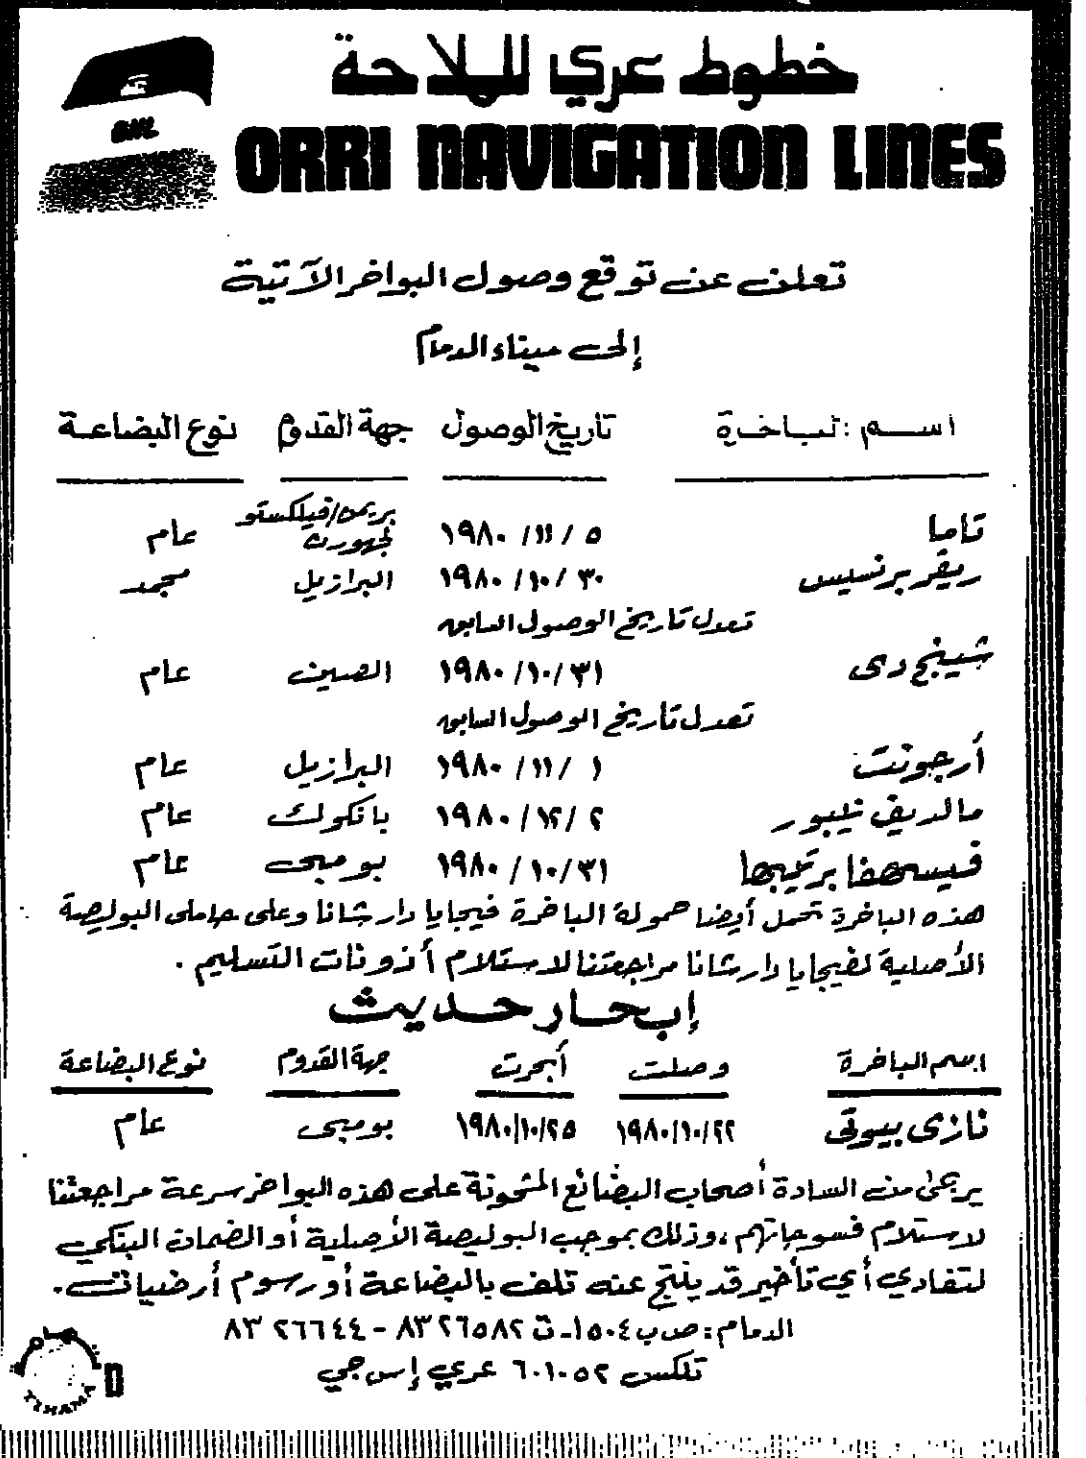 خطوط عري للملاحة
ORRI NAVIGATION LINES
ONL
تعلن عن توقع وصول البواخر الآتية
إلى ميناء الدمام
اسم الباخرة تاريخ الوصول جهة القدوم نوع البضاعة
تاما ٥ / ١١ / ١٩٨٠ بريمن/فيلكستو عام
ريفر برنسيس ٣٠ / ١٠ / ١٩٨٠ البرازيل مجمد
تعدل تاريخ الوصول السابق
شينج دى ٣١ / ١٠ / ١٩٨٠ الصين عام
تعدل تاريخ الوصول السابق
أرجونت ١ / ١١ / ١٩٨٠ البرازيل عام
مالديف نيبور ٢ / ١٢ / ١٩٨٠ بانكوك عام
٣١ / ١٠ / ١٩٨٠ بومبى عام
هذه الباخرة تحمل أيضا حمولة الباخرة فيجايا دارشانا وعلى حاملى البوليصة
الأصلية لفيجايا دارشانا مراجعتنا لاستلام أذونات التسليم .
إبحار حديث
اسم الباخرة وصلت أبحرت جهة القدوم نوع البضاعة
نازى بيوتى ١٩٨٠/١٠/٢٢ ١٩٨٠/١٠/٢٥ بومبى عام
يرجى من السادة أصحاب البضائع المشحونة على هذه البواخر سرعة مراجعتنا
لاستلام فسوحاتهم ،وذلك بموجب البوليصة الأصلية أو الضمان البنكي
لتفادي أي تأخير قد ينتج عنه تلف بالبضاعة أو رسوم أرضيات .
الدمام : ص ب ١٥٠٤ـ ت ٨٣٢٦٥٨٢ - ٨٣٢٦٦٤٤
تلكس ٦٠١٠٥٢ عري إس جي
تهامة
TIHAMA
D